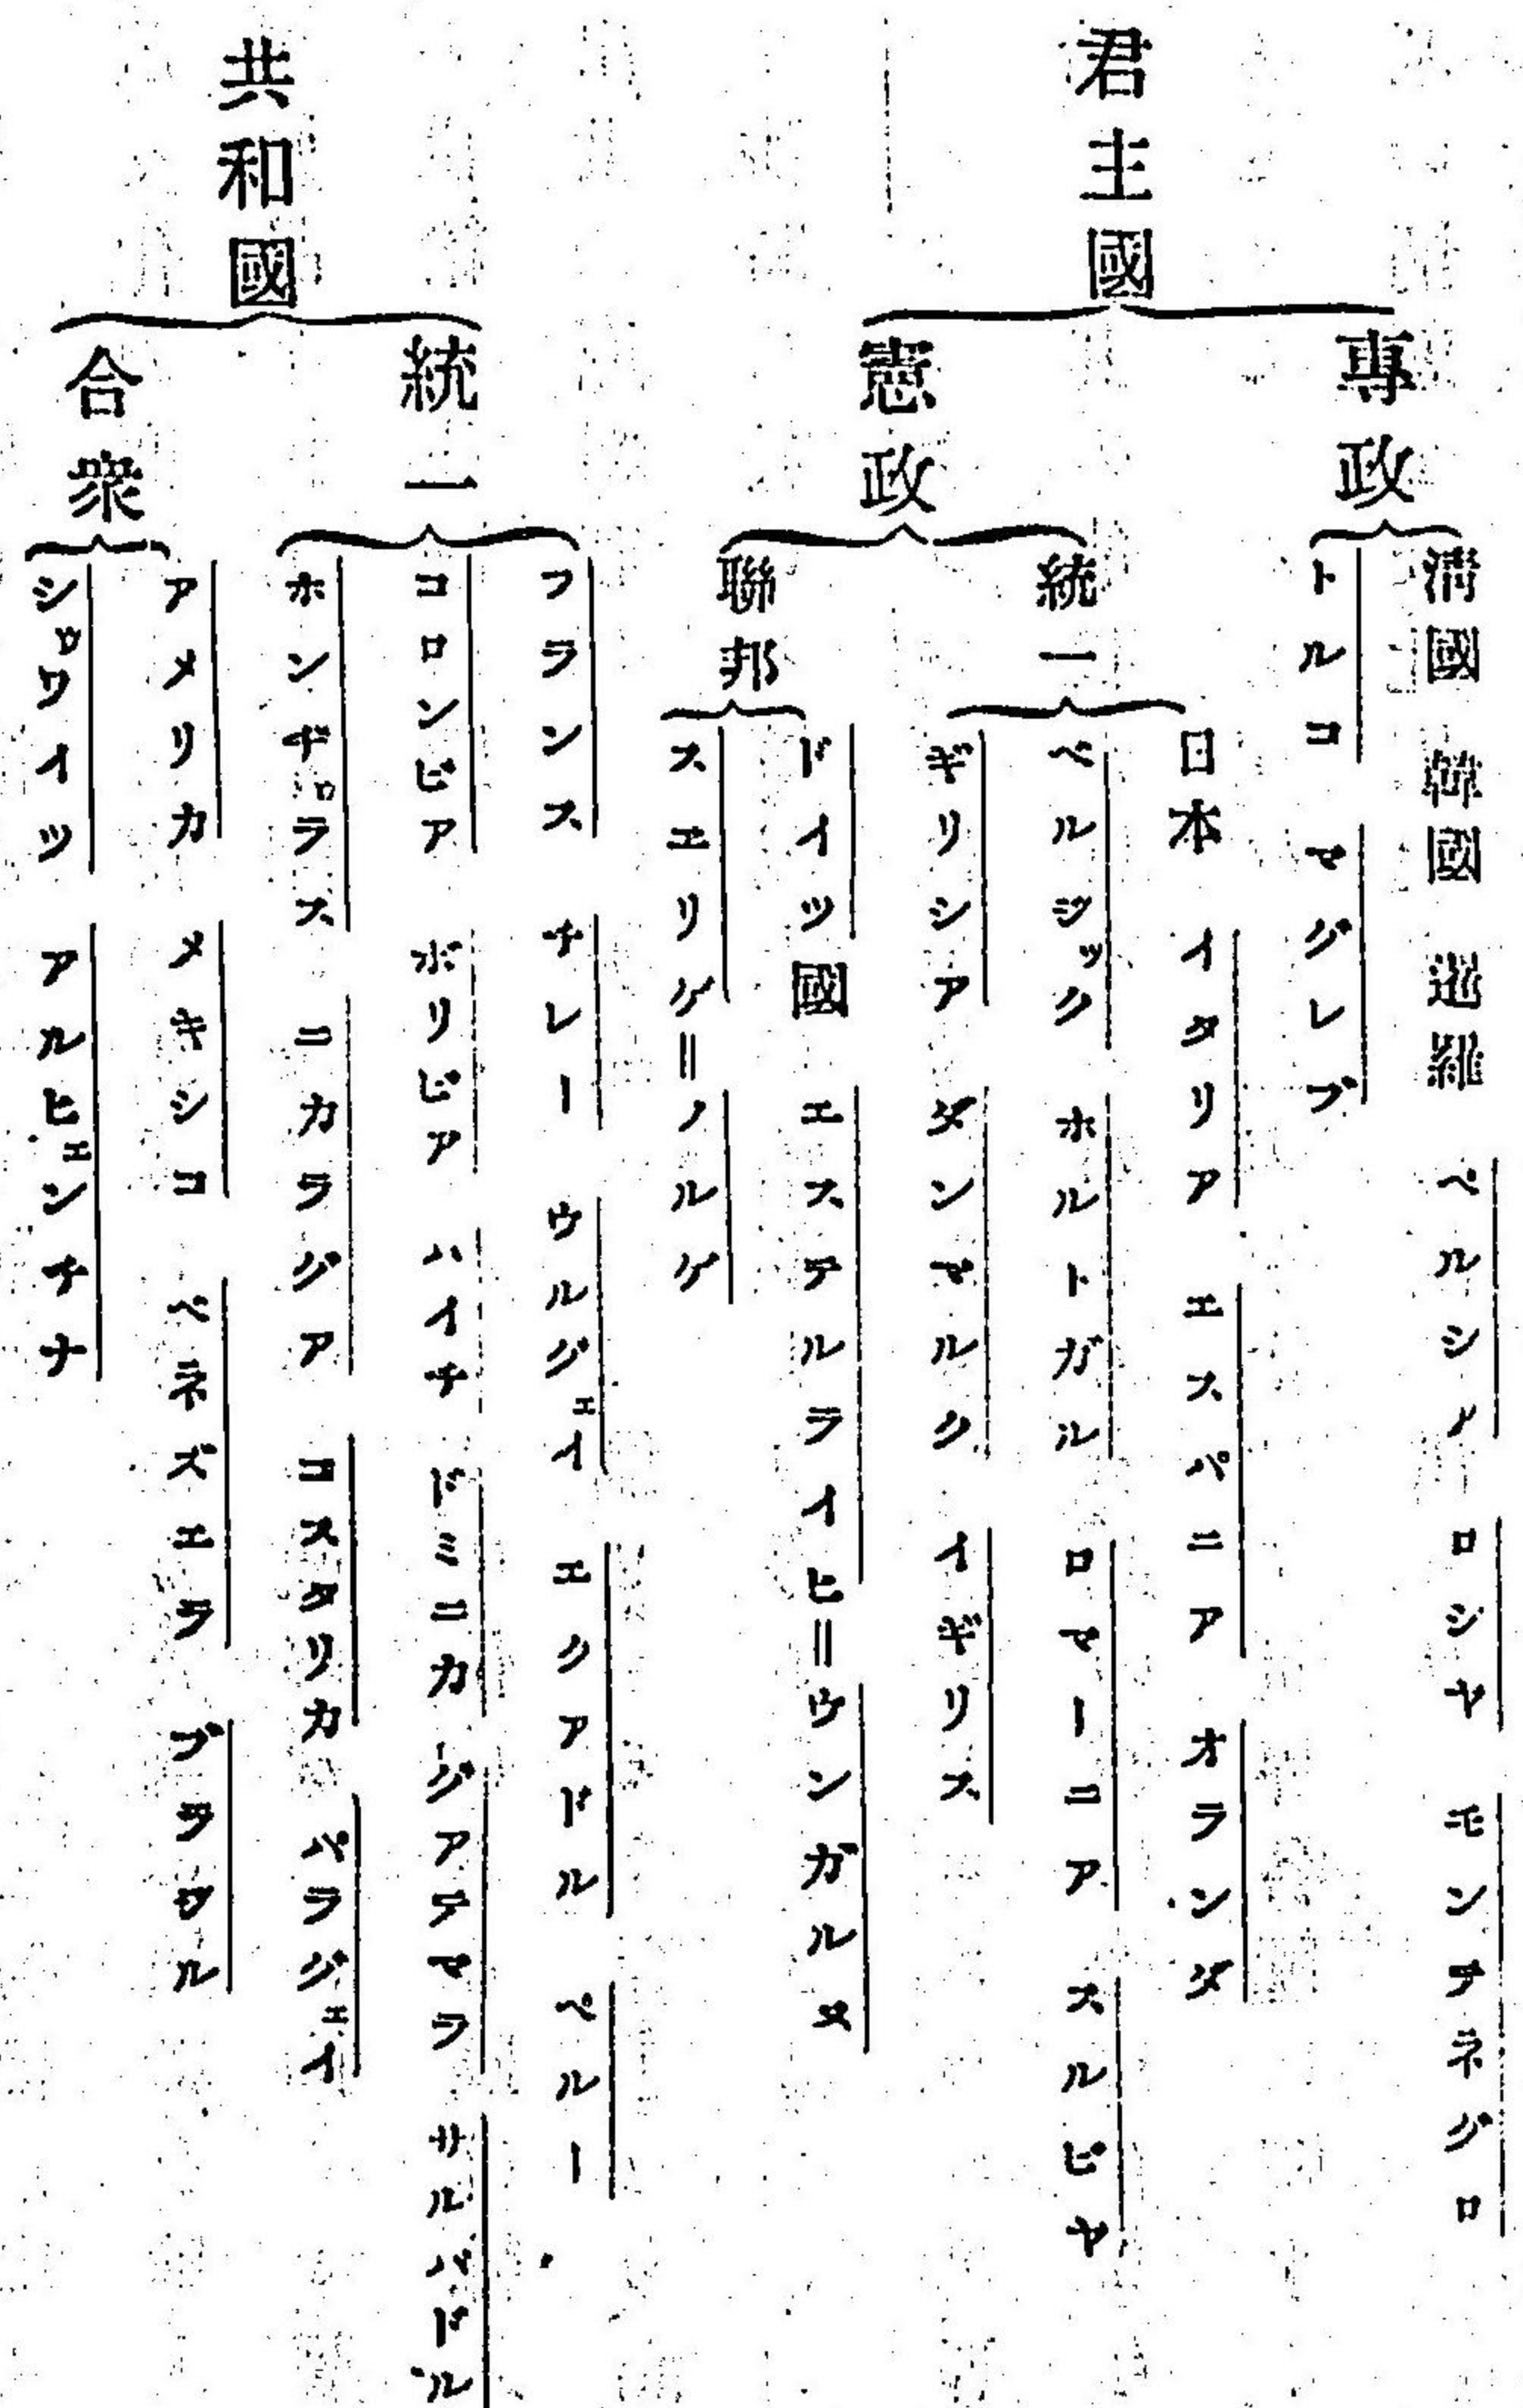 君主國
專政
清國 韓國 暹羅 ペルシア ロシヤ モンテネグロ
トルコ マグレブ
憲政
統一
日本 イタリア エスパニア オランダ
ベルジック ホルトガル ロマーニア スルビヤ
ギリシア ダンマルク イギリス
聯邦
ドイツ國 エステルライヒ＝ウンガルヌ
スエリゲ＝ノルゲ
共和國
統一
フランス チレー ウルグェイ エクアドル ペルー
コロンビア ボリビア ハイチ ドミニカ グアテマラ サルバドル
ニカラグア コスタリカ パラグェイ
合衆
アメリカ メキシコ ベネズエラ
アルヒェンチナ